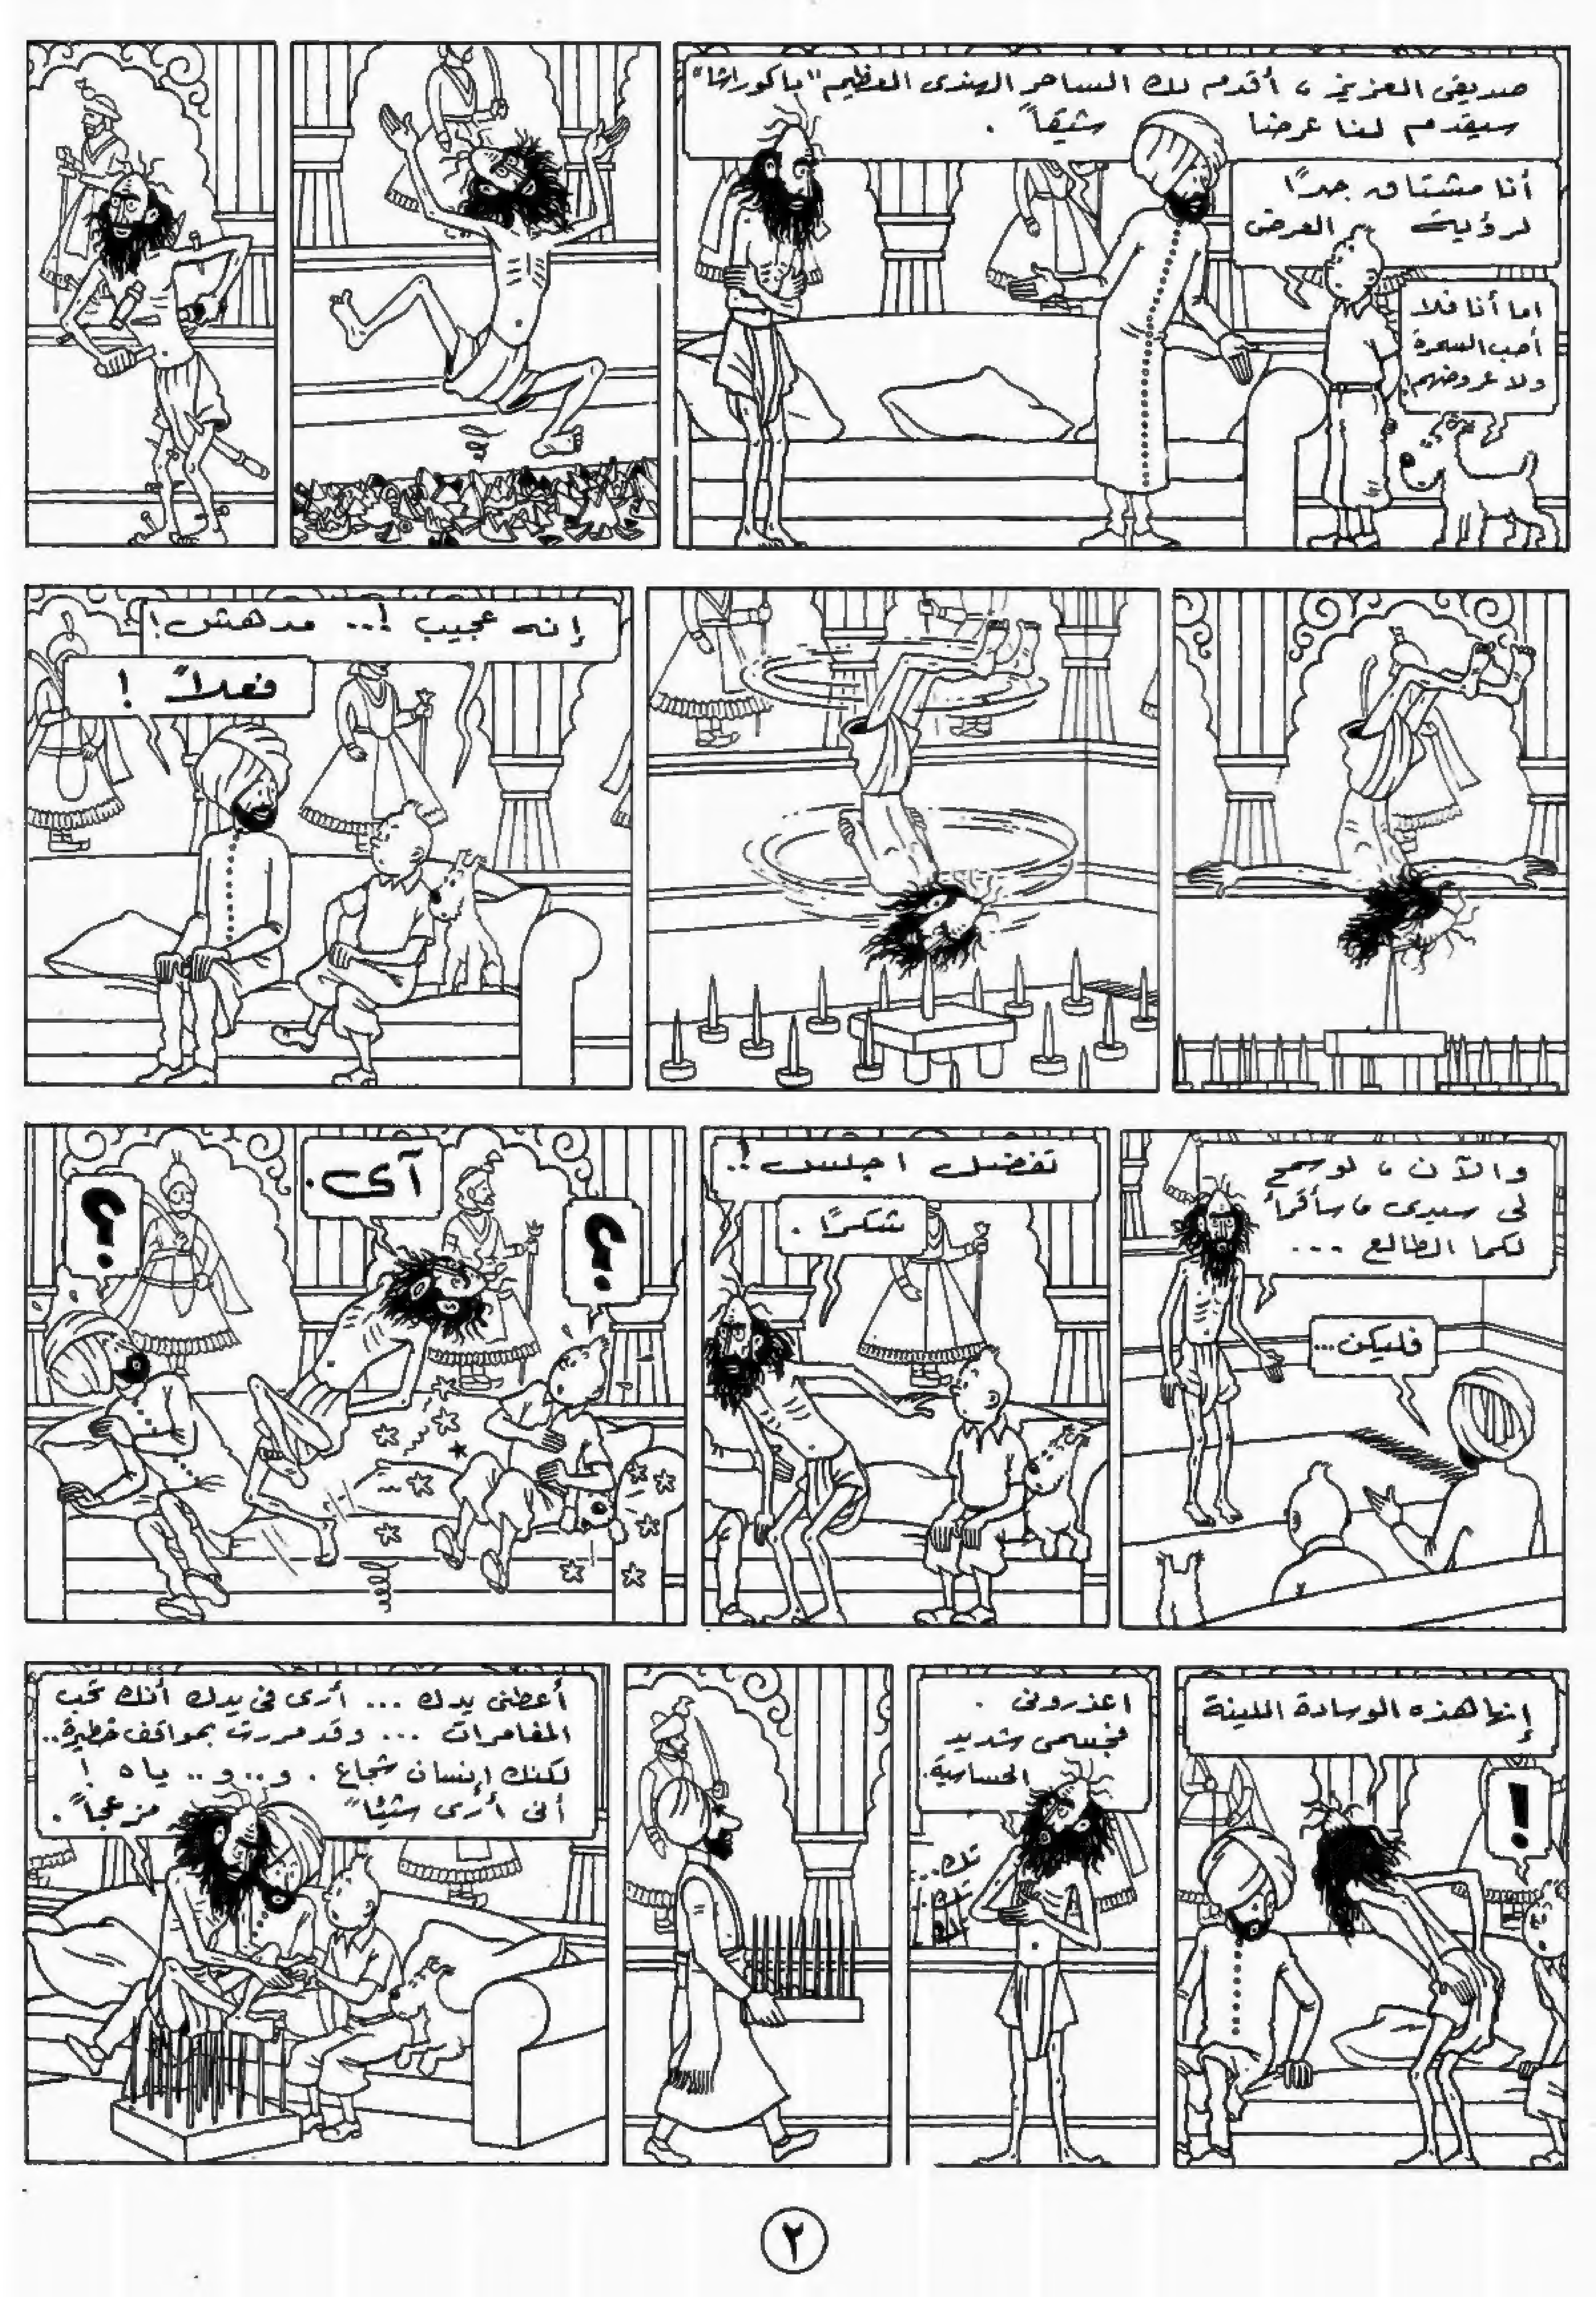 صديقى العزيز، أقدم لك الساحر الهندى العظيم "باكوراشا"
سيقدم لنا عرضنا شيقاً.
أنا مشتاق جدًا
لرؤية العرض
اما أنا فلا
أحب السحرة
ولا عروضهم!
إنه عجيب !.. مدهش!
فعلاً !
والآن، لو سمح
لى سيدى، سأقرأ
لكما الطالع ...
فليكن...
تفضل اجلس !..
شكرًا .
؟
آى.
؟
إنها هذه الوسادة اللينة
!
اعذرونى .
فجسمى شديد
الحساسية.
تك..
تك..
أعطنى يدك ... أرى فى يدك أنك تحب
المغامرات ... وقد مررت بمواقف خطيرة..
لكنك إنسان شجاع . و..و.. ياه !
أنى أرى شيئا" مزعجاً".
٢